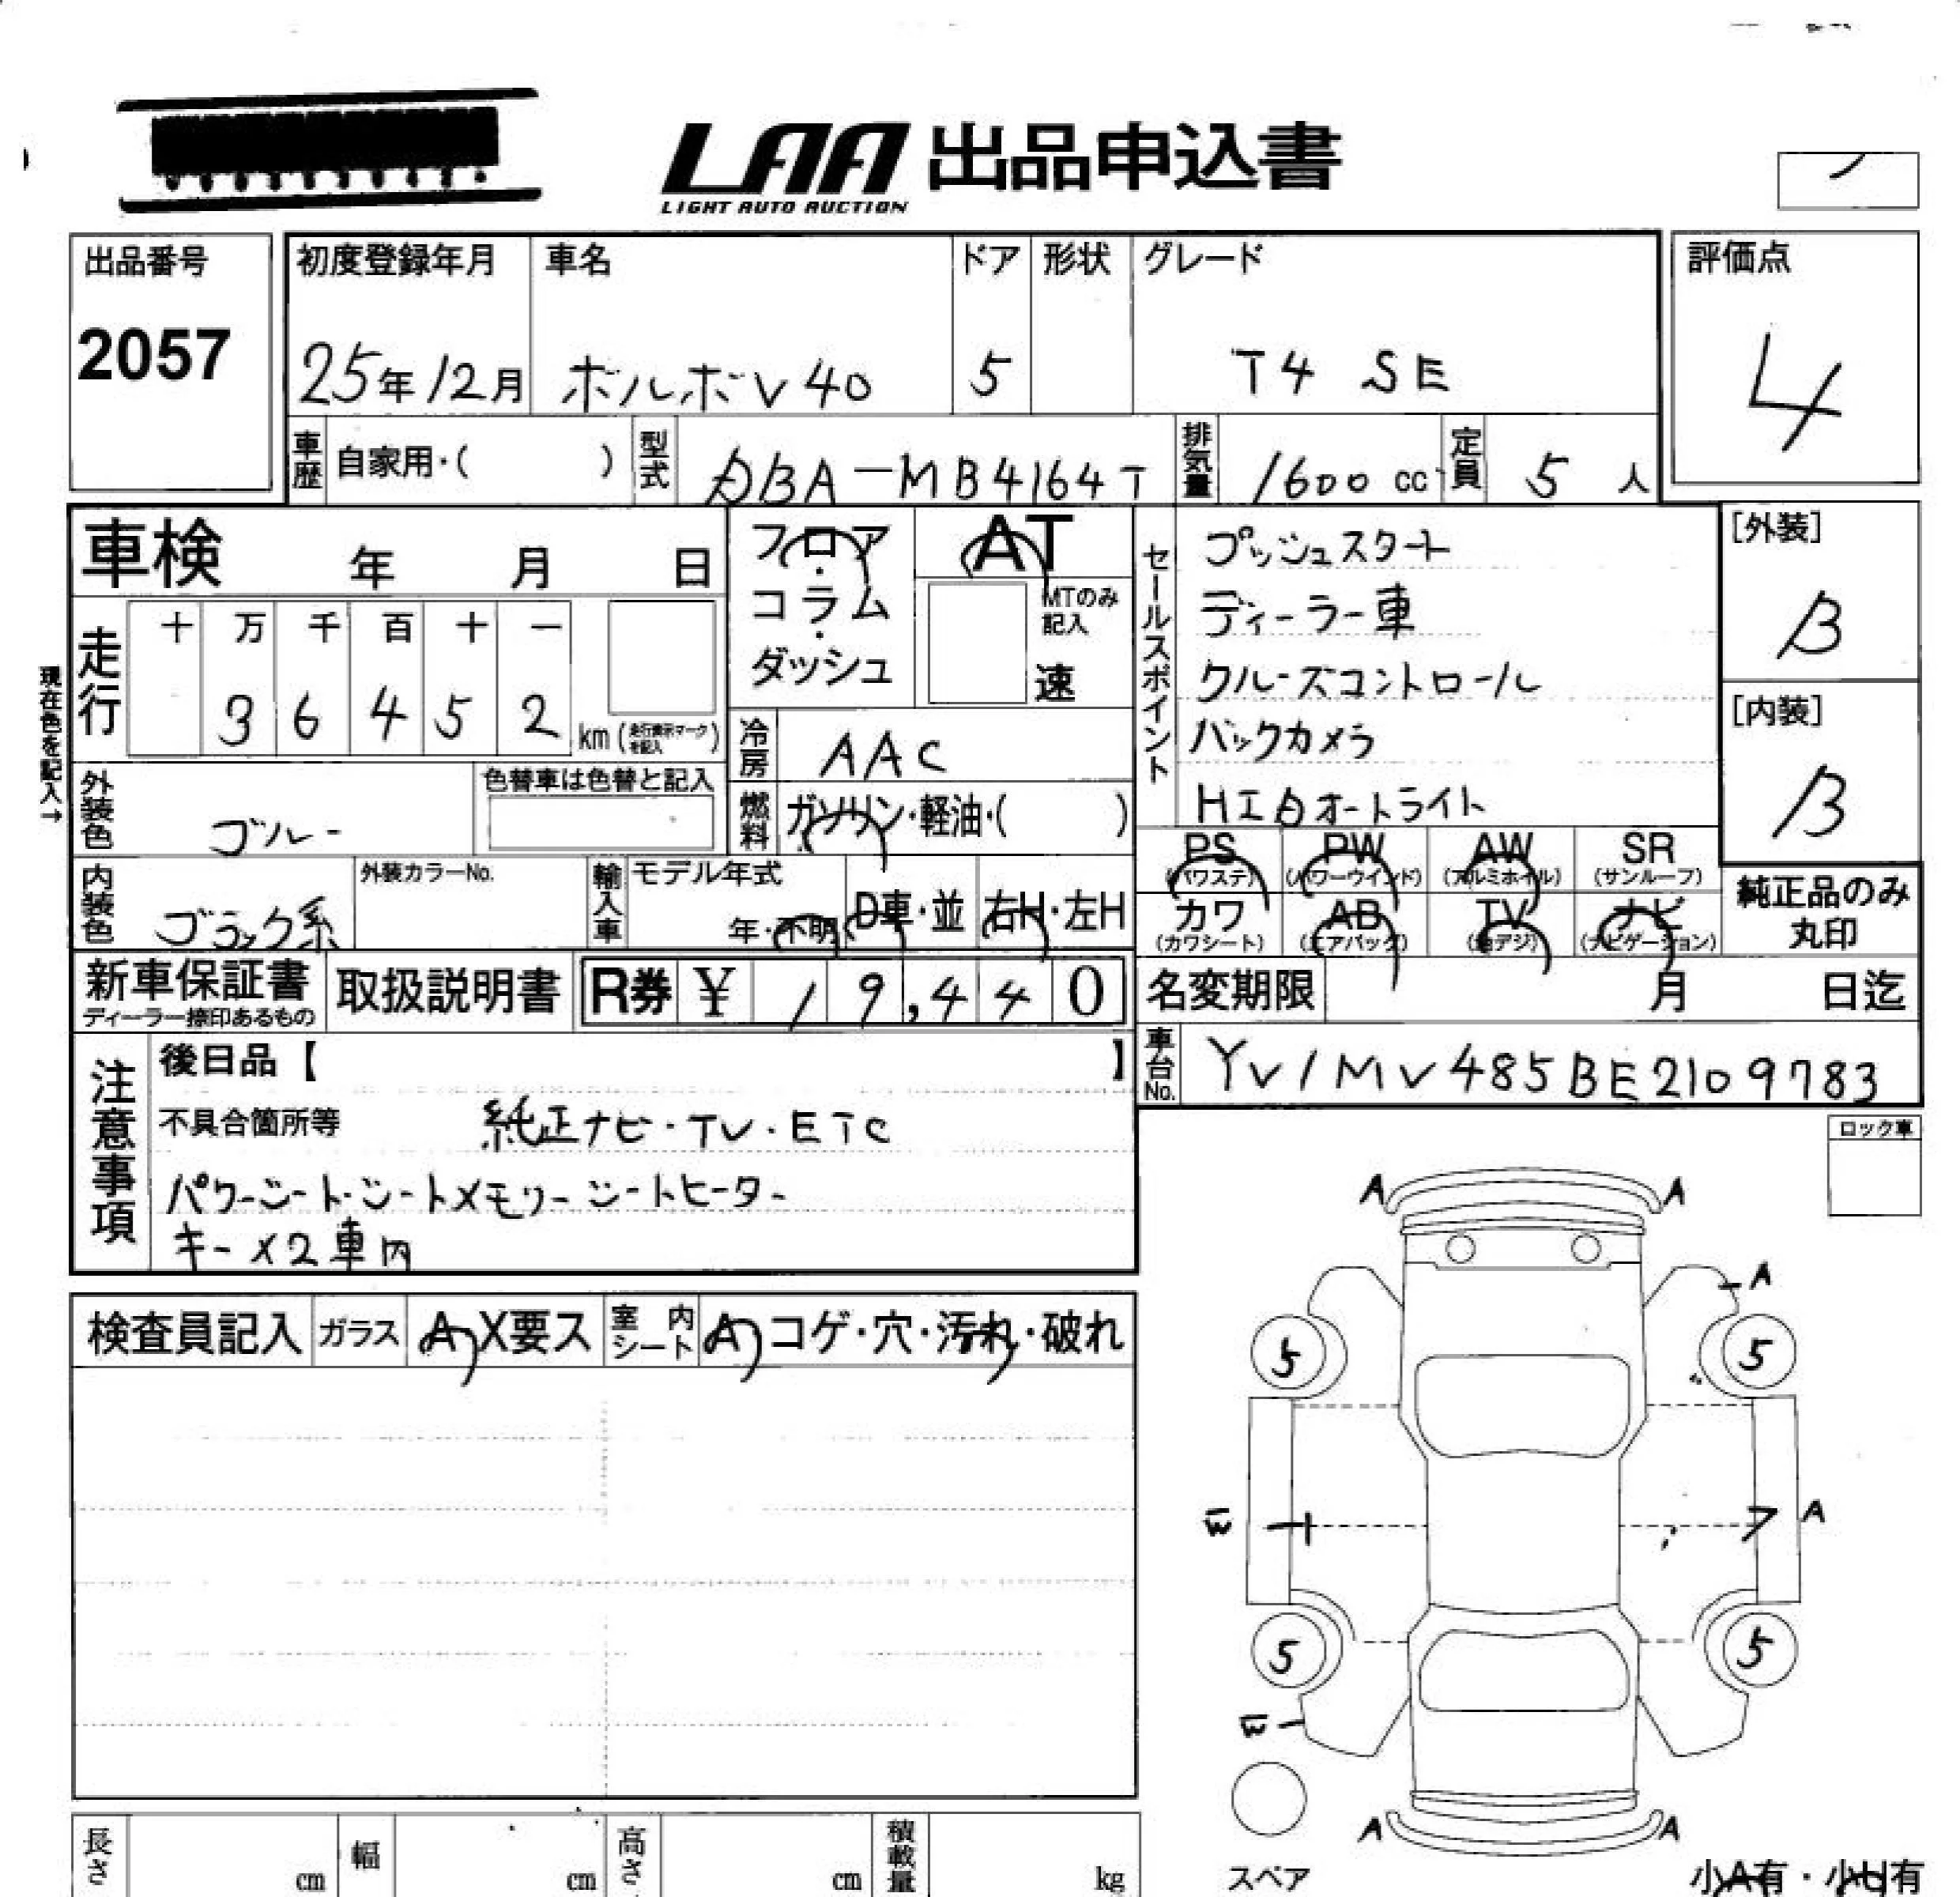 LAA 出品申込書
LIGHT AUTO AUCTION
出品番号
2057
初度登録年月
25年12月
車名
ボルボV40
ドア
5
形状
グレード
T4 SE
評価点
4
車歴 自家用・( )
型式 DBA-MB4164T
排気量 1600 cc
定員 5 人
車検 年 月 日
フロア・コラム・ダッシュ
AT
MTのみ記入
速
現在色を記入→
走行 十 万 千 百 十 一
3 6 4 5 2 km
冷房 AAC
燃料 ガソリン・軽油・( )
外装色 ブルー
色替車は色替と記入
内装色 ブラック系
外装カラーNo.
輸入車 モデル年式
年・不明 D車・並 右H・左H
セールスポイント
プッシュスタート
ディーラー車
クルーズコントロール
バックカメラ
HIDオートライト
[外装]
B
[内装]
B
PS (パワステ) PW (パワーウインド) AW (アルミホイル) SR (サンルーフ)
カワ (カワシート) AB (エアバッグ) TV (地デジ) ナビ (ナビゲーション)
純正品のみ丸印
新車保証書
ディーラー捺印あるもの
取扱説明書
R券 ¥ 19,440
名変期限 月 日迄
車台No. YV1MV485BE2109783
注意事項
後日品【 】
不具合箇所等 純正ナビ・TV・ETC
パワーシート・シートメモリー シートヒーター
キー×2車内
ロック車
検査員記入 ガラス A X要ス 室内シート A コゲ・穴・汚れ・破れ
A A
A
5 5
A
5 5
A A
スペア
長さ cm 幅 cm 高さ cm 積載量 kg
小A有・小U有